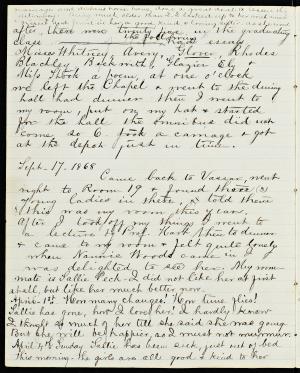 after. there were twenty nine in the graduating
class. the following read essays
Misses Whitney, Avery, Glover, Rhodes
Blachley, Glazier, Ely &
Miss Shook a poem, at one o'clock
we left the Chapel & went to the dining
hall had dinner then I went to
my room, put on my hat & started
for the hall the omnibus did not
come so C. took a carriage & got
at the depot just in time.
Sept. 17. 1868
Came back to Vassar, went
right to Room 19 & found three (3)
young ladies in there, & told them
this was my room this year.
After I took off my hat I went to
a lecture by Prof. Hart, then to dinner
& came to my room & felt quite lonely
when Nannie Woods came in I
was delighted to see her. My room
mate is Tallie Peck. I did not like her at first
at all, but like her much better now.
April 1st How many changes! How time flies!
Tallie has gone, how I love her. I hardly knew
I thought so much of her till she said she was going
But she will be happier, so I must not murmur.
April 4th Sunday. Tallie has been sick, just out of bed
this morning. The girls are all good & kind to her